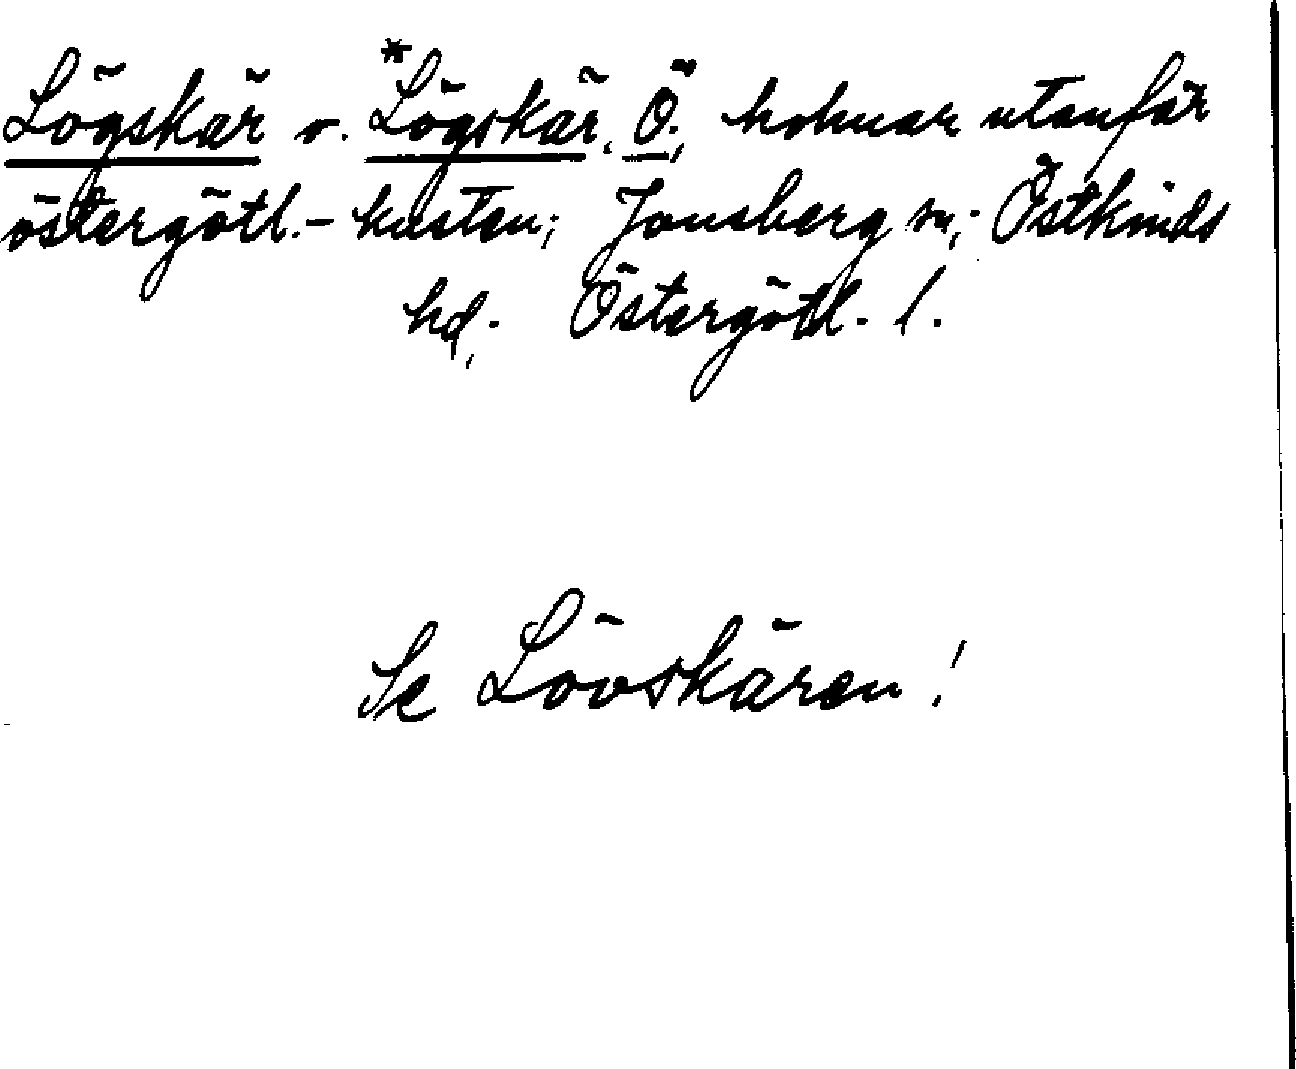 Lögskär o. *Lögskär, Ö., holmar utanför
östergötl.-kusten; Jonsberg sn; Östkinds
hd, Östergötl. l.
Se Lövskären!